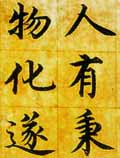 人有秉
物化遂